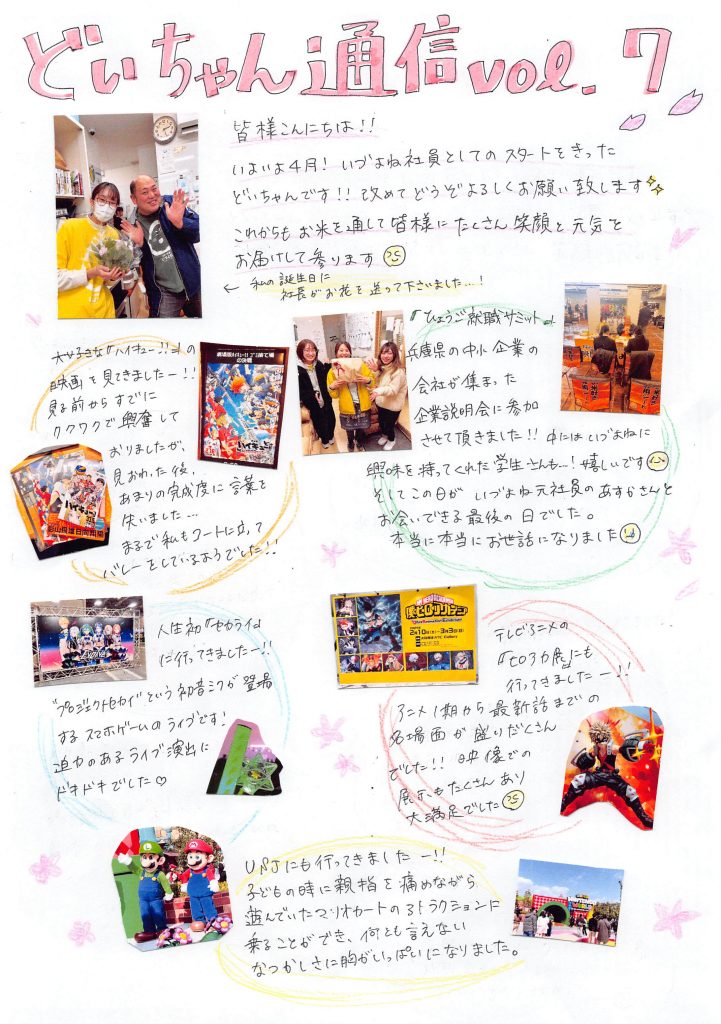 どいちゃん通信vol.7
皆様こんにちは!!
いよいよ4月! いづよね社員としてのスタートをきった
どいちゃんです!! 改めてどうぞよろしくお願い致します
これからもお米を通して皆様にたくさん笑顔と元気を
お届けして参ります
← 私の誕生日に
社長がお花を送って下さいました…!
大好きな『ハイキュー!!』の
映画を見てきましたー!!
見る前からすでに
ワクワクで興奮して
おりましたが、
見おわった後、
あまりの完成度に言葉を
失いました…
まるで私もコートに立って
バレーをしているようでした!!
『ひょうご就職サミット』
兵庫県の中小企業の
会社が集まった
企業説明会に参加
させて頂きました!! 中にはいづよねに
興味を持ってくれた学生さんも…! 嬉しいです
そしてこの日が いづよね元社員のあすかさんと
お会いできる最後の日でした。
本当に本当にお世話になりました
人生初『セカライ』
に行ってきましたー!!
"プロジェクトセカイ"という初音ミクが登場
するスマホゲームのライブです!
迫力のあるライブ演出に
ドキドキでした♡
僕のヒーローアカデミア
2月10日(土)-3月3日(日)
テレビアニメの
『ヒロアカ展』にも
行ってきましたー!!
アニメ1期から最新話までの
名場面が盛りだくさん
でした!! 映像での
展示もたくさんあり
大満足でした
USJにも行ってきましたー!!
子どもの時に親指を痛めながら
遊んでいたマリオカートのアトラクションに
乗ることができ、何とも言えない
なつかしさに胸がいっぱいになりました。